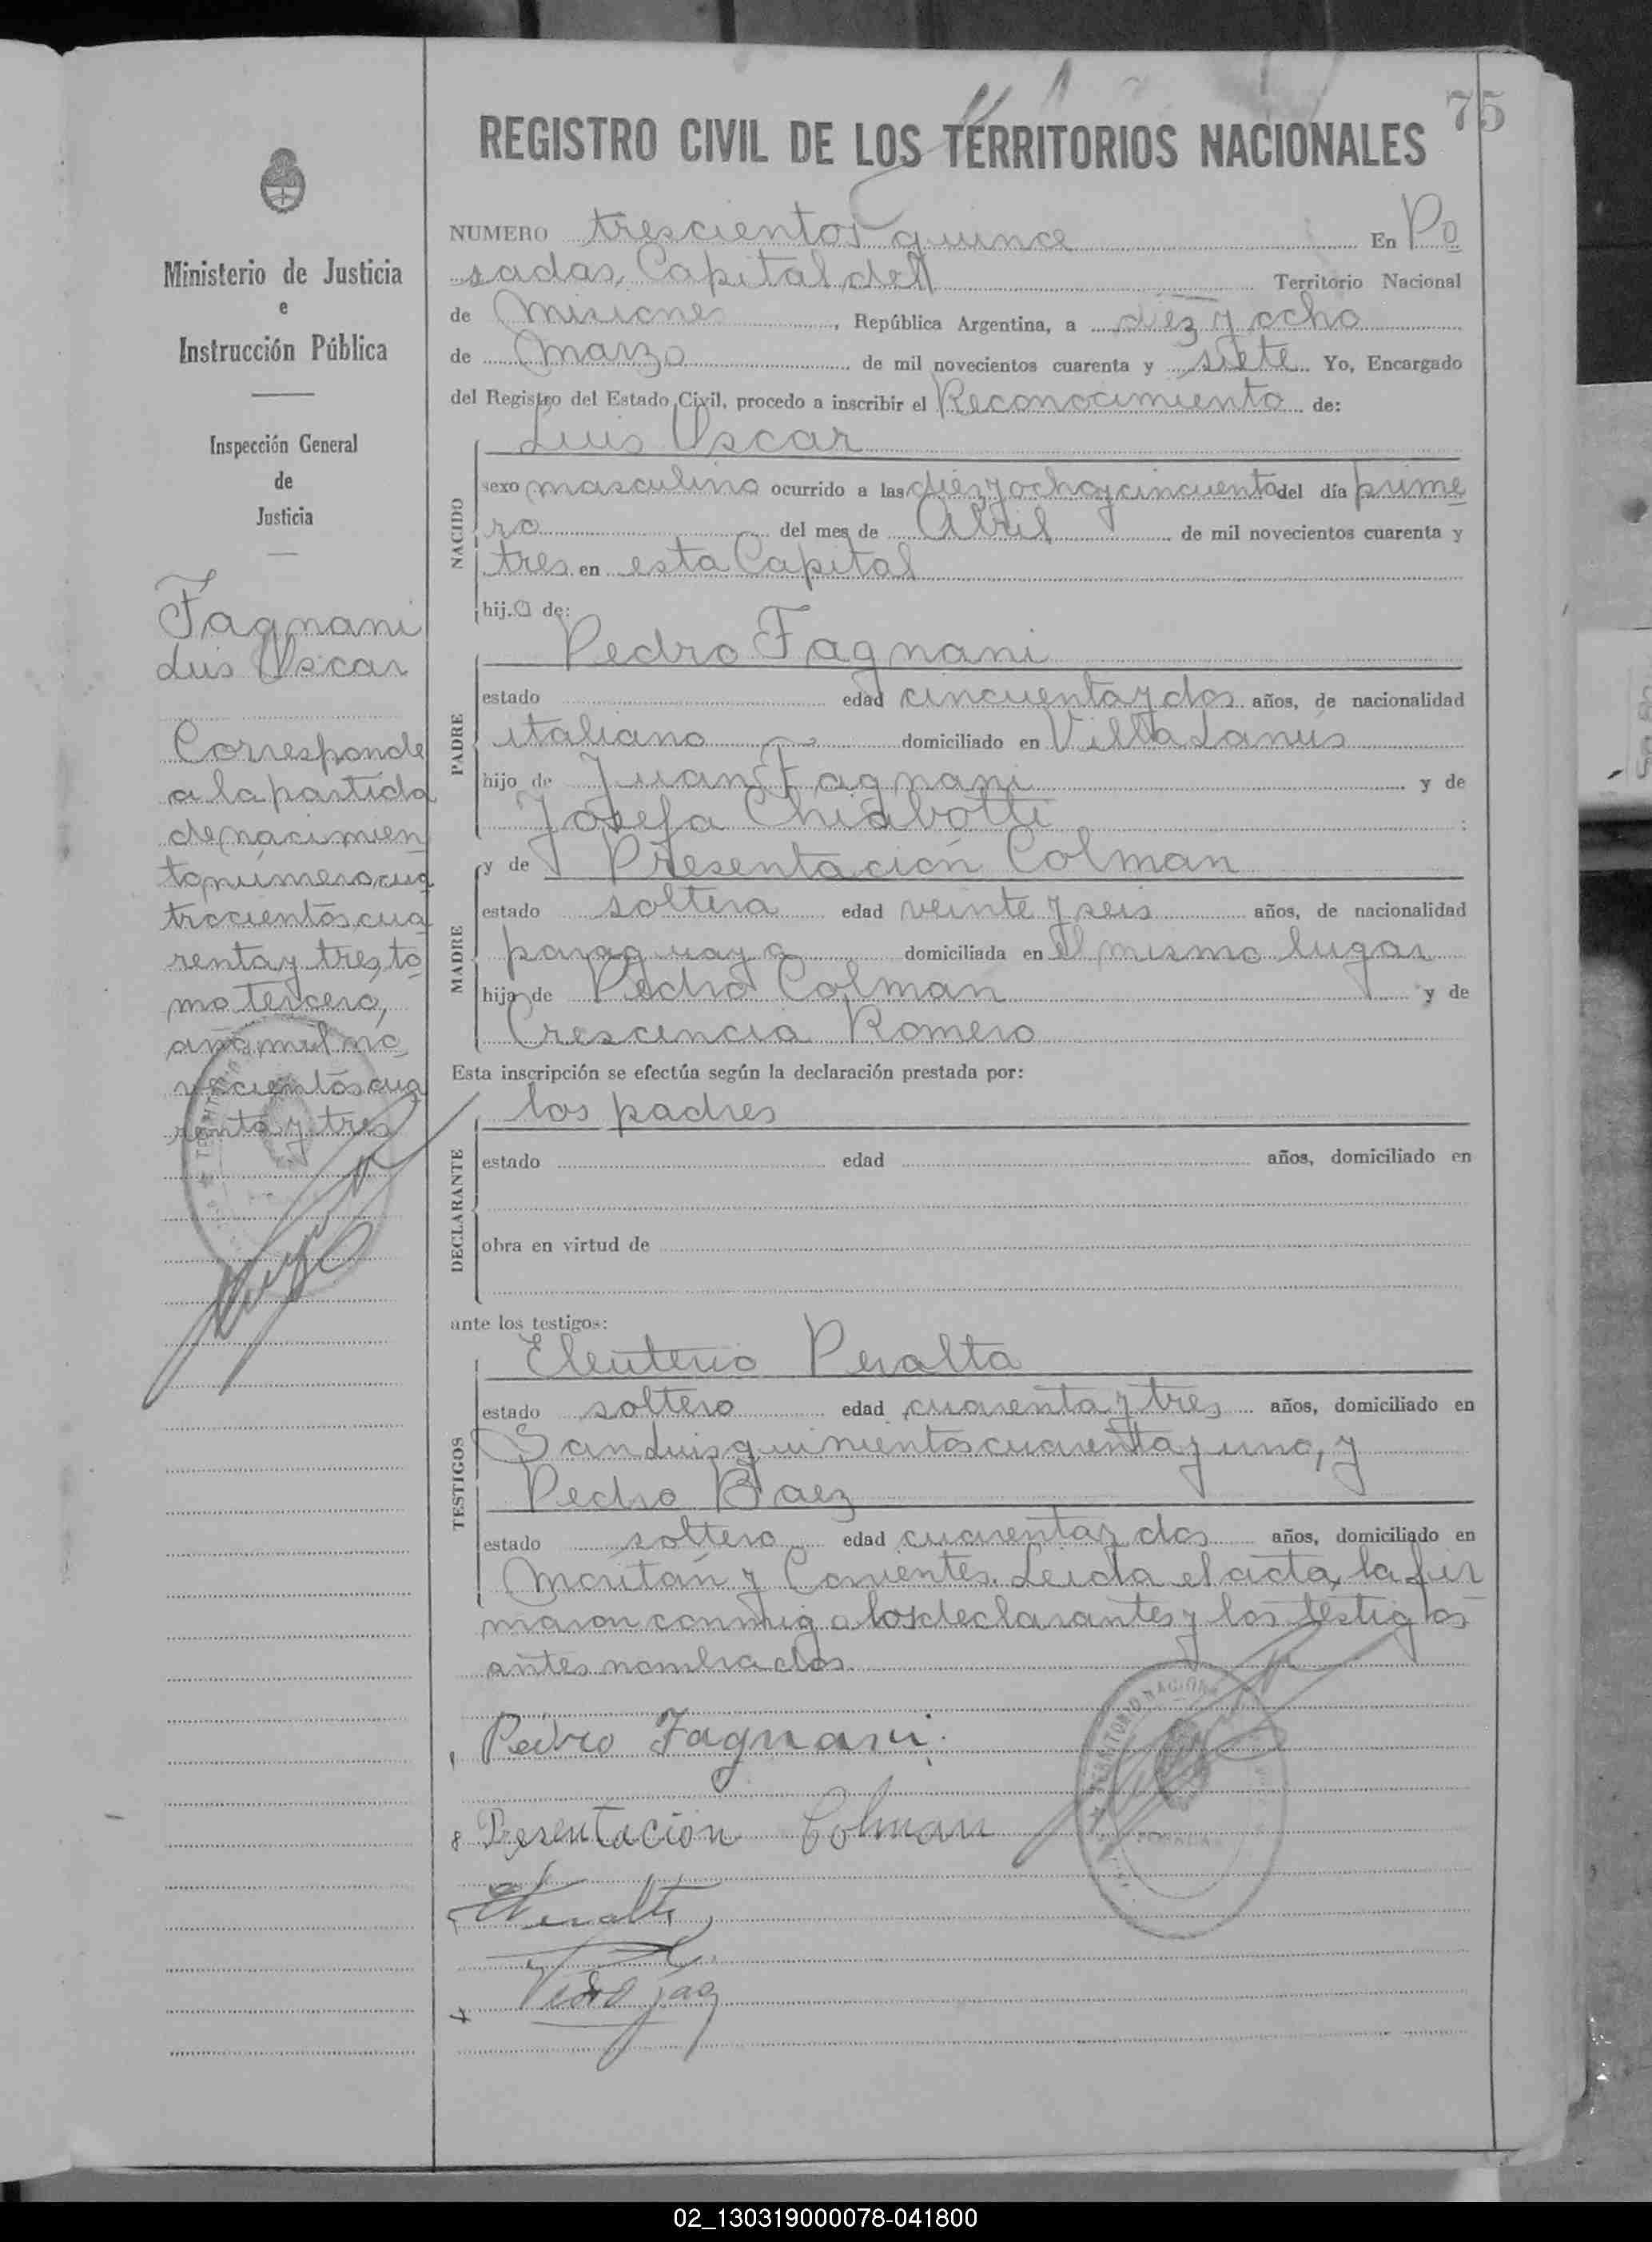 75
REGISTRO CIVIL DE LOS TERRITORIOS NACIONALES
Ministerio de Justicia
e
Instrucción Pública
Inspección General
de
Justicia
Fagnani
Luis Oscar
Corresponde
a la partida
de nacimien
to número cua
trocientos cua
renta y tres, to
mo tercero,
año mil no
vecientos cua
renta y tres
NUMERO trescientos quince En Po
sadas, Capital del Territorio Nacional
de Misiones, República Argentina, a diez y ocho
de Marzo de mil novecientos cuarenta y siete Yo, Encargado
del Registro del Estado Civil, procedo a inscribir el Reconocimiento de:
Luis Oscar
NACIDO
sexo masculino ocurrido a las diez y ocho y cincuenta del día prime
ro del mes de Abril de mil novecientos cuarenta y
tres en esta Capital
hijo de:
Pedro Fagnani
PADRE
estado edad cincuenta y dos años, de nacionalidad
italiano domiciliado en Villa Lanús
hijo de Juan Fagnani y de
Josefa Chiabotti
y de Presentación Colman
MADRE
estado soltera edad veinte y seis años, de nacionalidad
paraguaya domiciliada en el mismo lugar
hija de Pedro Colman y de
Crescencia Romero
Esta inscripción se efectúa según la declaración prestada por:
los padres
DECLARANTE
estado edad años, domiciliado en
obra en virtud de
ante los testigos:
Eleuterio Peralta
TESTIGOS
estado soltero edad cuarenta y tres años, domiciliado en
San Luis quinientos cuarenta y uno, y
Pedro Baez
estado soltero edad cuarenta y dos años, domiciliado en
Moritán y Corrientes. Leida el acta, la fir
maron conmigo los declarantes y los testigos
antes nombrados.
Pedro Fagnani.
Presentacion Colman
Peralta
02_130319000078-041800